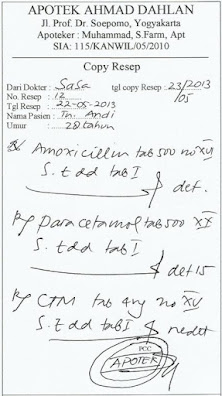 APOTEK AHMAD DAHLAN
Jl. Prof. Dr. Soepomo, Yogyakarta
Apoteker : Muhammad, S.Farm, Apt
SIA: 115/KANWIL/05/2010
Copy Resep
Dari Dokter : SaSa tgl copy Resep : 23/2013
No. Resep : 12 /05
Tgl Resep : 22-05-2013
Nama Pasien : Tn. Andi
Umur : 28 tahun
R/ Amoxicillin tab 500 no XV
S. t dd tab I
det.
R/ paracetamol tab 500 XX
S. t dd tab I
det 15
R/ CTM tab 4mg no XV
S. t dd tab I
nedet
PCC
APOTEK